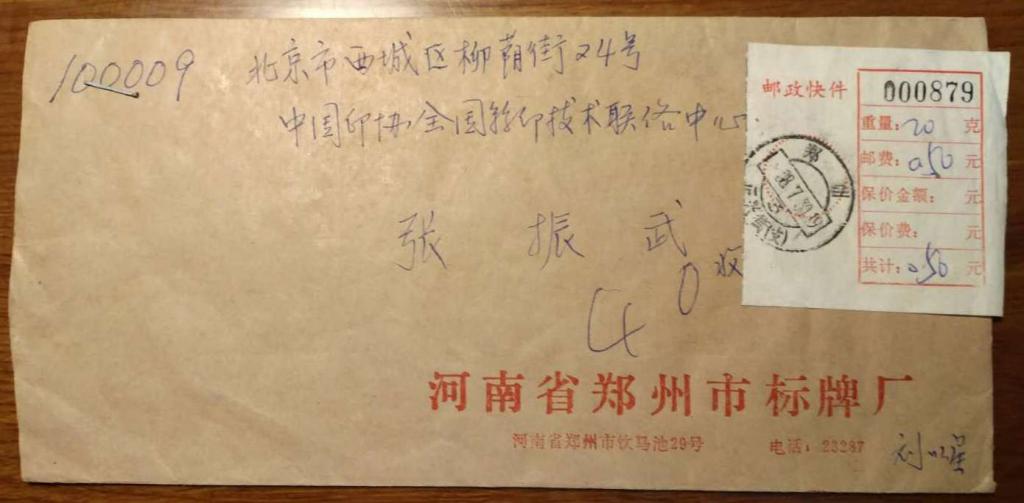 100009 北京市西城区柳荫街24号
中国印协全国丝印技术联络中心
张振武 收
40
邮政快件 000879
重量:20克
邮费:0.50元
保价金额: 元
保价费: 元
共计:0.50元
郑州
河南省郑州市标牌厂
河南省郑州市饮马池29号 电话:23287